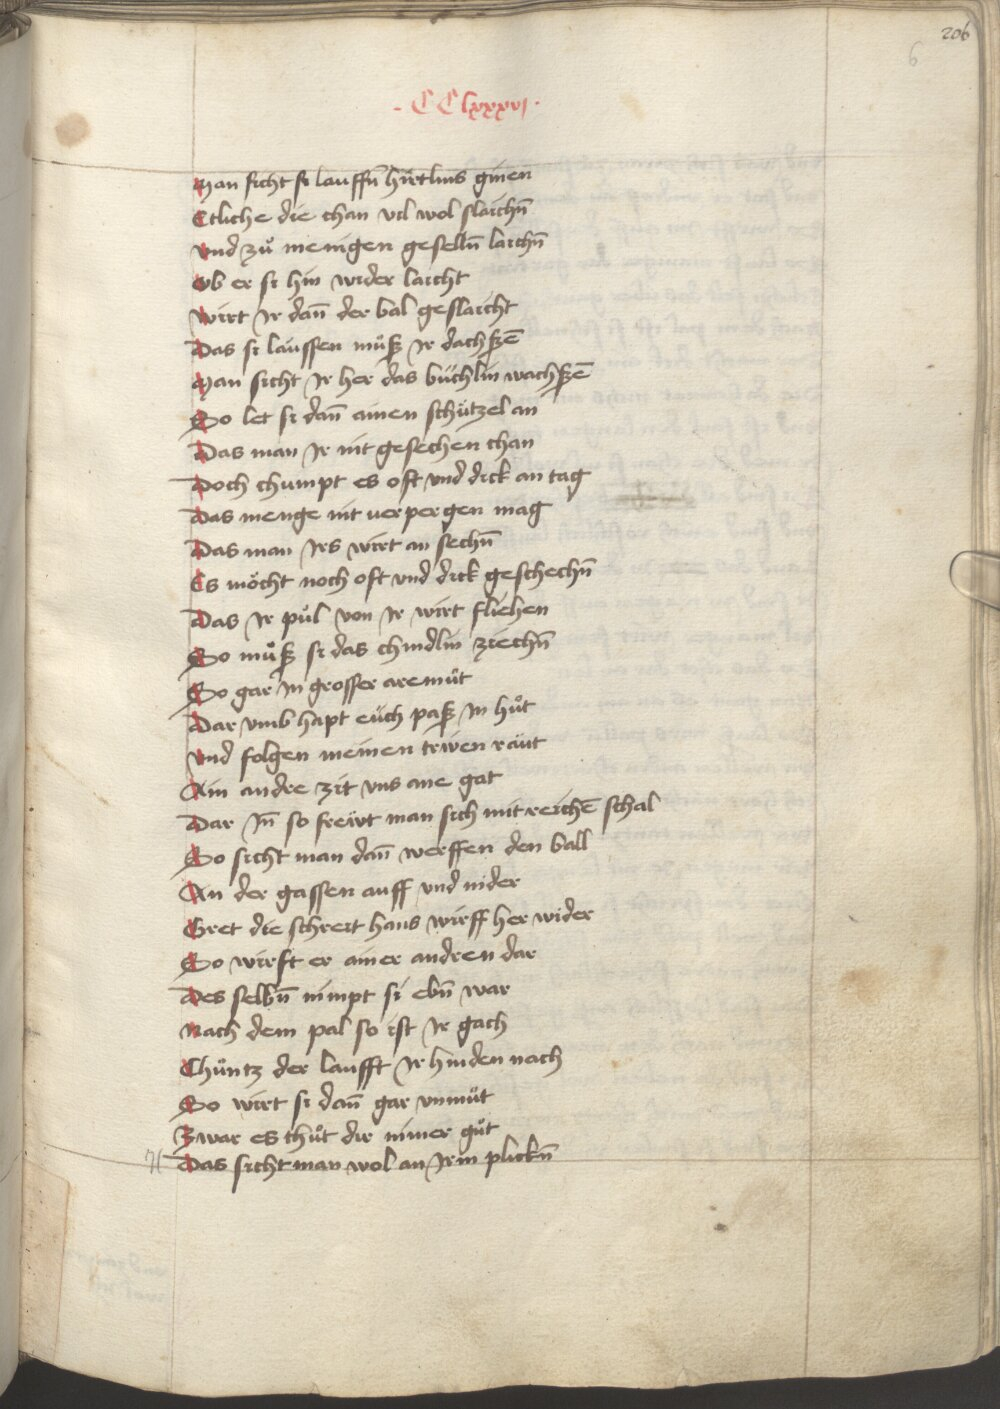 206
6
· CClxxxvj ·
Man sicht si lauffn̄ hin
Etliche die chan vil wol slaichn̄
Vnd zuͦ menigen geselln̄ laichn̄
Ob er si hin wider laicht
Wirt Ir dan̄ der bal geslaicht
Das si laussen muͦß Ir dachßē
Man sicht Ir her das büchlin wachßē
So let si dan̄ ainen schützel an
Das man Ir nit gesechen chan
Doch chumpt es oft vnd dick an tag
Das menge nit verpergen mag
Das man Irs wirt an sechn̄
Es möcht noch oft vnd dick geschechn̄
Das Ir puͦl von Ir wirt fliehen
So muͦß si das chindlin ziechn̄
So gar In grosser aremuͦt
Dar vmb hapt eüch paß In huͦt
Vnd folgen meinen trwen raut
Ain andre zit vns ane gat
Dar In̄ so freẅt man sich mit reichē schal
So sicht man dan̄ werffen den ball
An der gassen auff vnd nider
Gret die schreit hans wirff her wider
So wirft er ainer andren dar
Des selbn̄ nimpt si ebn̄ war
Nach dem pal so ist Ir gach
Chuͦntz der laufft Ir hinden nach
So wirt si dan̄ gar vnmuͦt
Zwar es thuͦt dir nimer guͦt
Das sicht man wol an Irm plickn̄